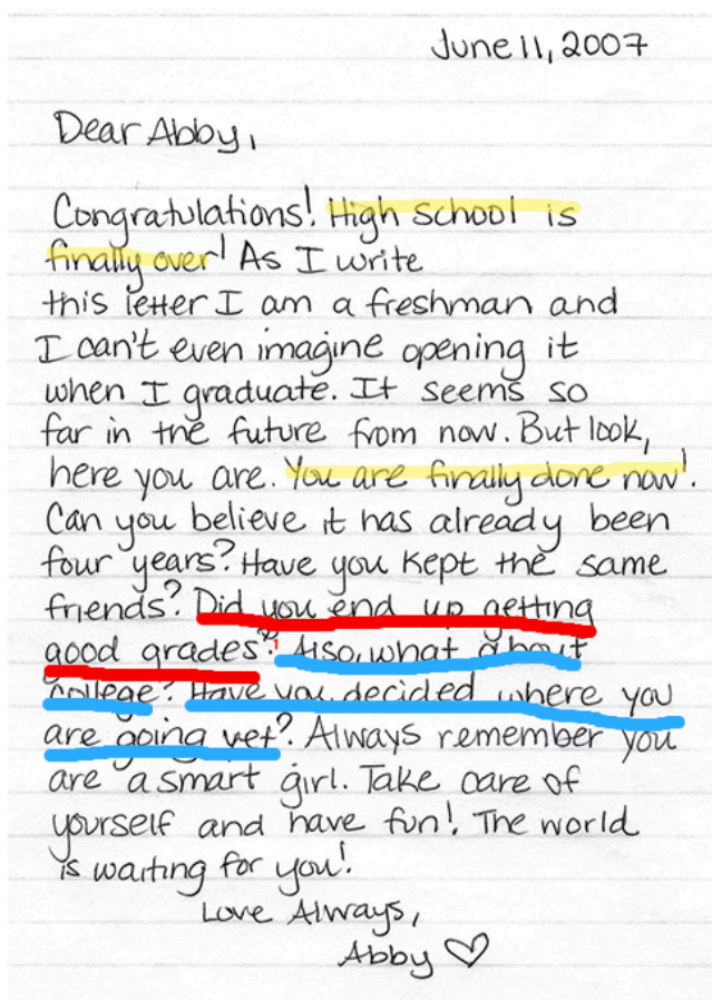 June 11, 2007
Dear Abby,
Congratulations! High school is
finally over! As I write
this letter I am a freshman and
I can't even imagine opening it
when I graduate. It seems so
far in the future from now. But look,
here you are. You are finally done now!.
Can you believe it has already been
four years? Have you kept the same
friends? Did you end up getting
good grades? Also, what about
college? Have you decided where you
are going yet? Always remember you
are a smart girl. Take care of
yourself and have fun! The world
is waiting for you!
Love Always,
Abby ♡